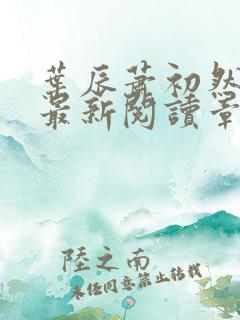 葉辰蕭初然
最新閱讀章
陸之南
未經同意禁止轉載